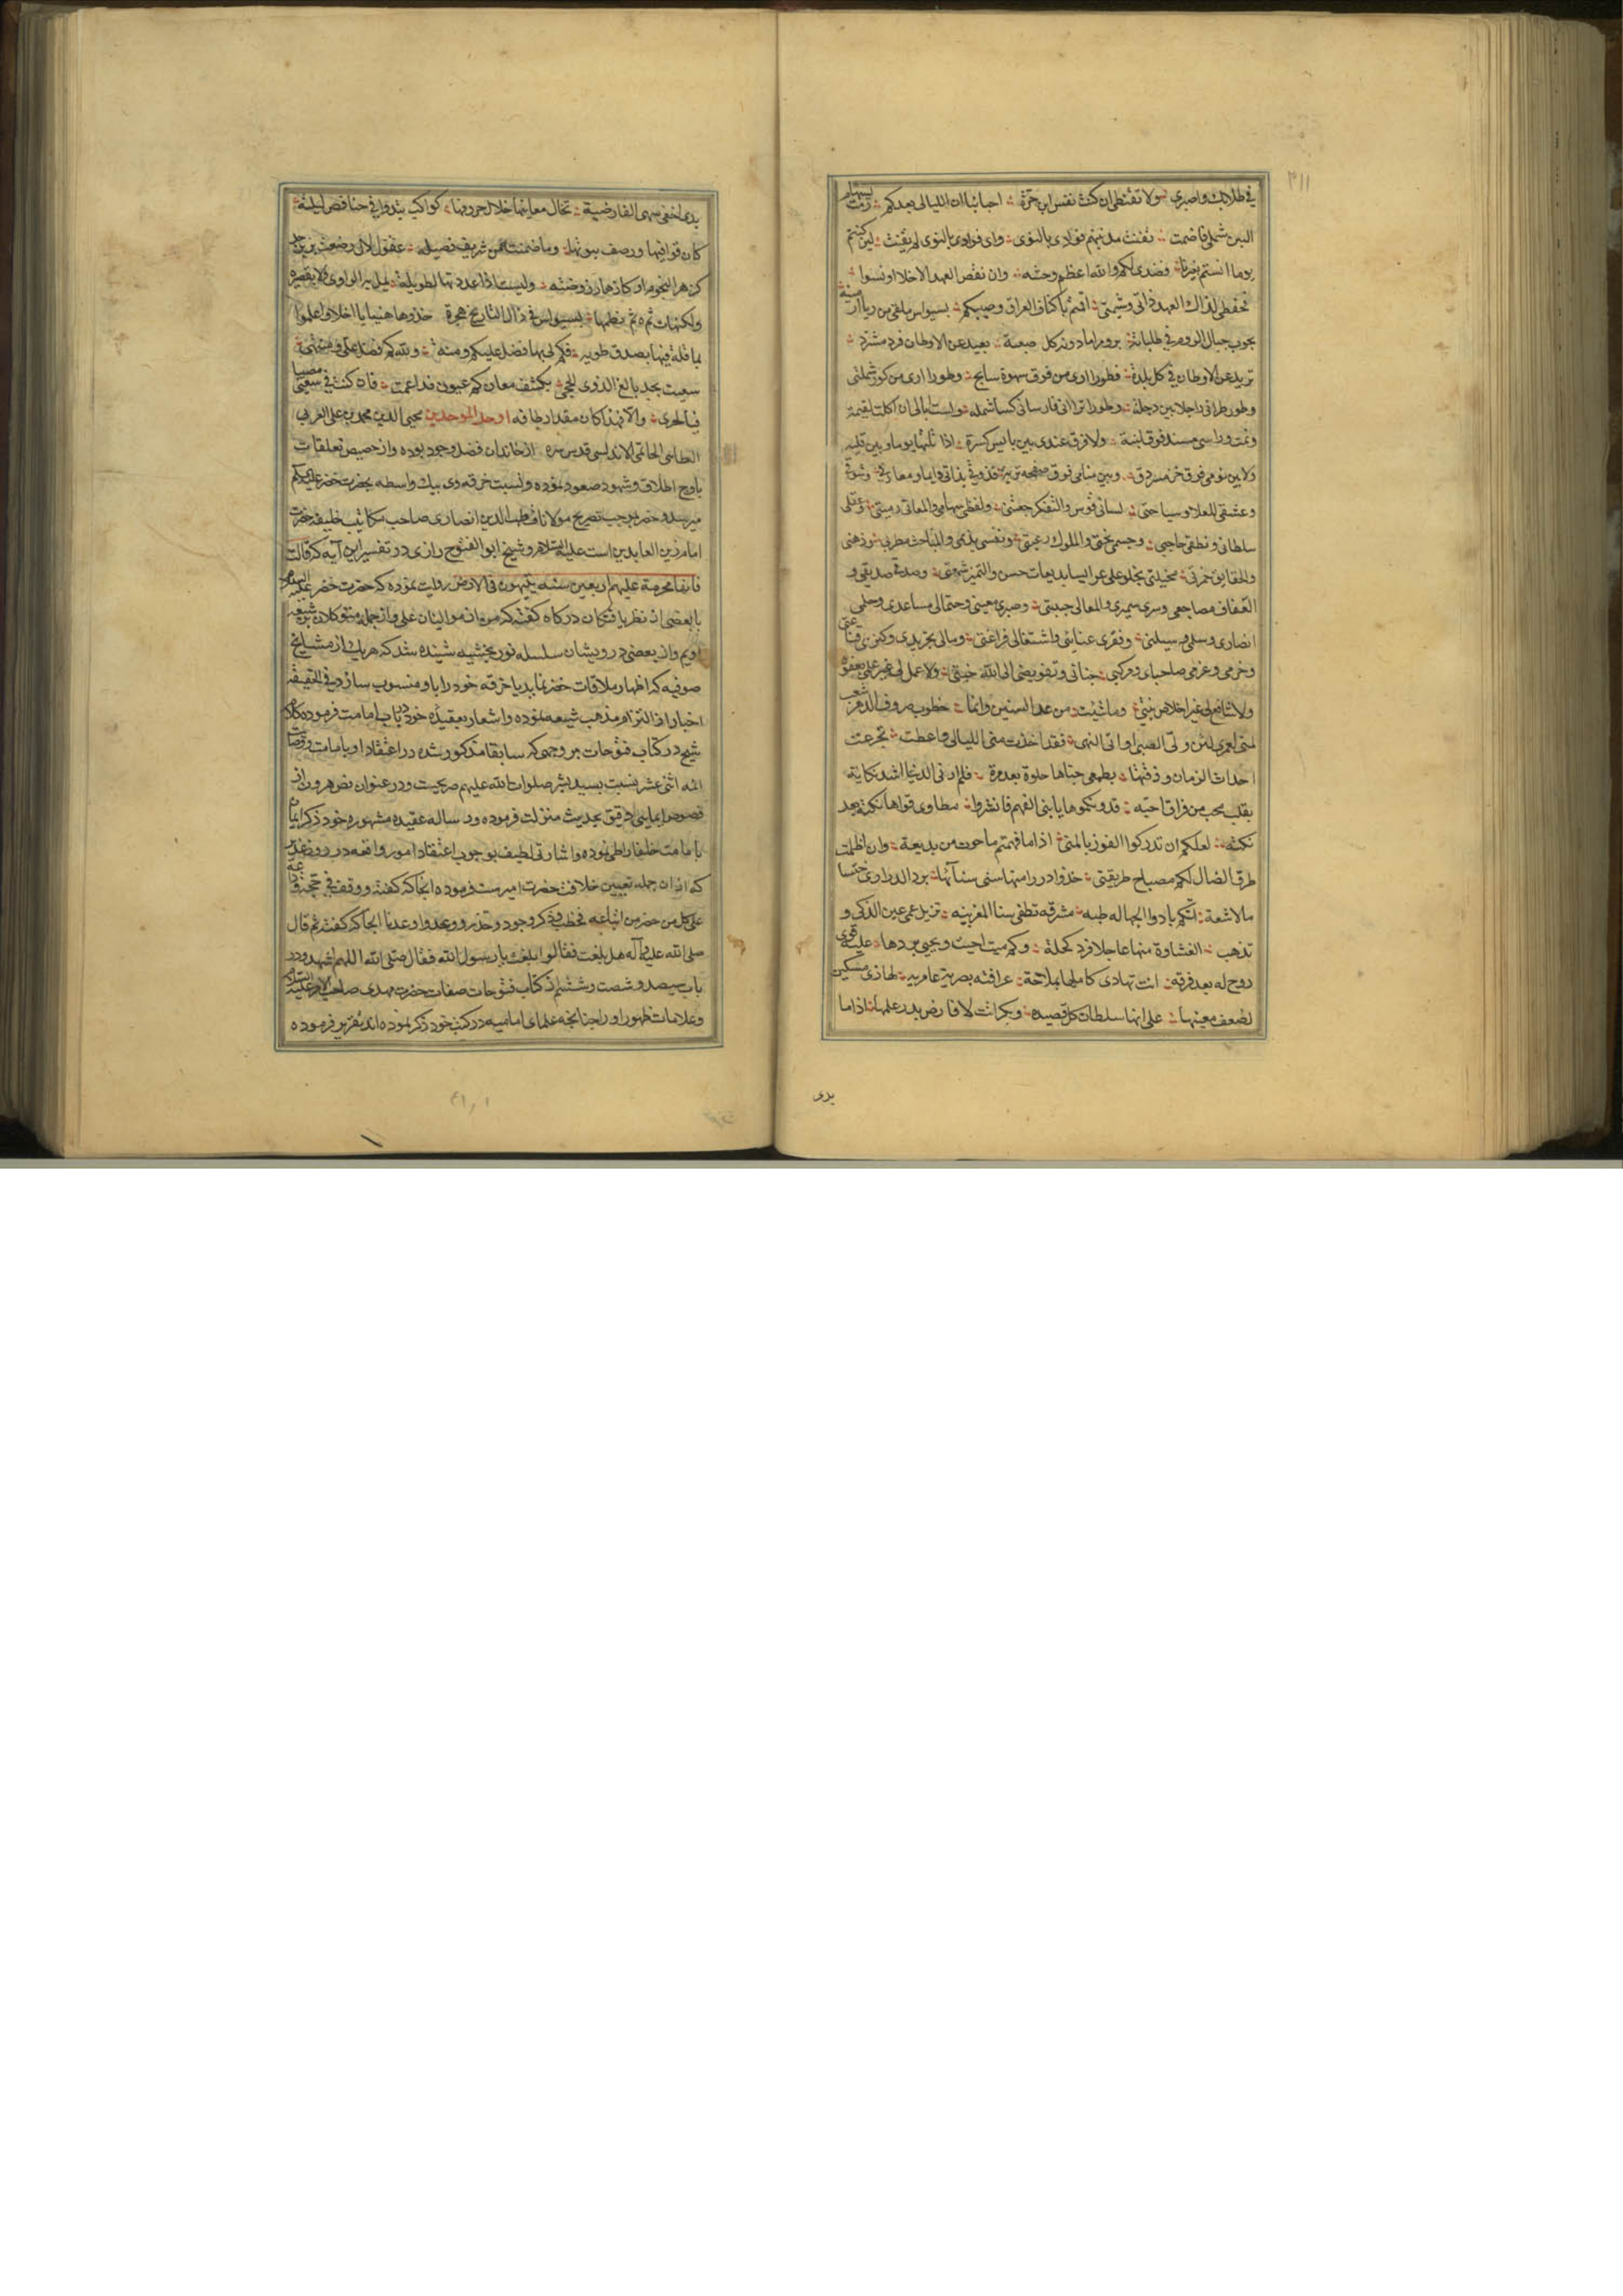 ٣١١
في طلابك واصبري ولا تقنطي ان كنت نفس ابن حرة احبابنا ان الليالي بعدكم رمت بسهام
البين شملي فاصمت تفتت مذ بنتم فؤادي بالنوى واي فؤاد بالنوى لم يفتت لئن كنتم
يوما انستم بغيرنا فعندي لكم والله اعظم وحشه وان نقض العهد الاخلا او نسوا
فحفظي لذاك العهد ذاتي وشيمتي اقمتم باكناف العراق وصبكم بسيواس ملقى من
يجوب جبال الروم في طلباته بروم اما دونه كل صعبة بعيد عن الاوطان فرد مشرد
تريد عن الاوطان في كل بلدة فطورا ارى من فوق سهوة سابح وطورا ارى من كور شملتي
وطورا تراني راجلا بين دجلة وطورا تراني فارسا في كسا شمله ولست ابالي ان اكلت لقيمة
ونمت وراسي مسند فوق لبنة ولا فرق عندي بين يابس كسرة اذا نلتها يوما وبين قليه
ولا بين نومي فوق خز مسردق وبين منامي فوق صفحه
وعشقي للعلا وسياحتي لساني قوس والتفكر جعبتي ولفظي سهامي والمعاني رميتي وعقلي
سلطاني ونطقي حاجبي وجسمي تختي والملوك رعيتي ونفسي بلدي والمباحث مطربي وذهني
والحقايق خمرتي مخيلتي تجلو على عرايسا بديعات حسن والتميز شمعتي وصدقي صديقي و
العفاف مضاجعي وسري سميري والمعالي حبيبتي وصبري معيني واحتمالي مساعدي وحلمي
انصاري وسلمي وسيلتي وفقري عنايتي واشتغالي فراغتي ومالي تجريدي وكنزي قناعتي
وخرمي وعزمي صاحباي ومركبي جناني وتفويضي الى الله خيبتي ولا عمل لي غير علمي بعفوه
ولا شافع لي غير اخلاص نيتي وما شئت من عد السنين وانما خطوب صروف الدهر شيب
لمتي لعمري لئن ولى الصبى او اتى النهى فقد اخذت مني الليالي واعطت تجرعت
احداث الزمان وذقتها بطعمي جناها حلوة بعد مرة فلم ار في الدنيا اشد نكاية
بقلب محب من فراق احبه فدونكموها يا بني الفهم فانشروا مطاوي قواها نكتة بعد
نكته لعلكم ان تدركوا الفوز بالمنى اذا ما فهمتم ما حوت من بديعة وان اظلمت
طرق الضال لكم مصباح طريقتي خذوا درر استها سنى سنائها برد الدراري خنسا
مالاشعة اتتكم بادوا الجهاله طبه مشرقه تطفي سنا المغربيه تزيل عمى عين الذكي و
تذهب الغشاوة منها عاجلا فرد كحلة وكم ميت احيت ويحيى بردها عليه قوى
روح له بعد فرقه اتت تهادى كاملها بملاحة عراقيه بصرية عامريه لها ذي مسكين
لضعف معينها على انها سلطان كل قصيده وبكر اتت لا فارض بدر علمها اذا ما
بدى
بدى اختفى سهى الفارضية تخال معانيها خلال حروفها كواكب تبدو في حنادس ليلة
كان قوافيها ورصف بيوتها وما ضمنت من شريف فضيله عقول لال رصعت بزبرجد
كزهر النجوم او كازهار روضته وليست اذا عددتها لطويلة يمل بها الراوي ولا بقصيرة
ولكنها ثم نظمها بسيواس في ذال التاريخ هجرة خذوها هنيئا يا اخلاي واعلموا
بما قلته فيها بصدق طويه فكم لي بها فضل عليكم ومنة ولله كم فضل علي ومنة
سعيت بجد بالغ الذوى للحجى بكشف معان كم عيون قد اعمت فان كنت في سعيي مصيبا
فبالحرى والا فهذا كان مقدار طاقه اوحد الموحدين محيي الدين محمد بن علي العربي
الطائي الحاتمي الاندلسي قدس سره از خاندان فضل وجود بوده واز حضيض تعلقات
باوج اطلاق وشهود صعود نموده ونسبت خرقه وى بيك واسطه بحضرت خضر عليه السلم
ميرسد وخضر بموجب تصريح مولانا قطب الدين انصارى صاحب مكاتيب خليفه حضرت
امام زين العابدين است عليه السلام وشيخ ابو الفتوح رازى در تفسير اين آيه كه قالت
فانها محرمة عليهم اربعين سنه يتيهون في الارض روايت نموده كه حضرت خضر عليه السلام
با بعضى از نظر يافتگان درگاه گفته كه من از مواليان على واز جمله متوكلان شيعه
اويم واز بعضى درويشان سلسله نوربخشيه شنيده شد كه هر يك از مشايخ
صوفيه كه اظهار ملاقات خضر نمايد يا خرقه خود را باو منسوب سازد في الحقيقه
اخبار از التزام مذهب شيعه نموده واشعار بعقيده خود در باب امامت فرموده كلام
شيخ در كتاب فتوحات بر وجهى كه سابقا مذكور شده در اعتقاد او بامامت ووصايت
ائمه اثنى عشر نسبت بسيد بشر صلوات الله عليهم صريحست ودر عنوان فص هرون از
فصوص ايمايى دقيق بحديث منزلت فرموده ودر رساله عقيده مشهوره خود ذكر ايمان
بامامت خلفا را طى نموده واشارتى لطيف بوجوب اعتقاد امور واقعه در روز غدير
كه از ان جمله تعيين خلافت حضرت اميرست فرموده انجا كه گفته ووقف في حجة وداعه
على كل من حضر من اتباعه فخطب وذكر وجود وحذر ووعد واوعد تا انجا كه گفته ثم قال
صلى الله عليه وآله هل بلغت فقالوا بلغت يا رسول الله فقال صلى الله اللهم اشهد ودر
باب سيصد وشصت وششم از كتاب فتوحات صفات حضرت مهدى صاحب الامر عليه السلام
وعلامات ظهور او را چنانچه علماى اماميه در كتب خود ذكر نموده اند تقرير فرموده